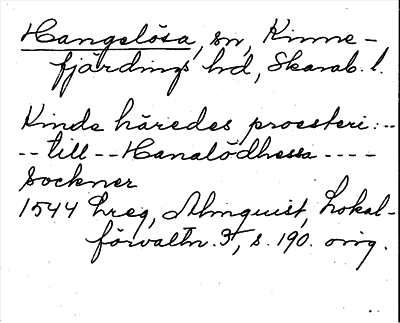 Hangelösa, sn, Kinne-
fjärdings hd, Skarab. l.
Kinde häredes proesteri: --
-- till -- Hanalödhessa ----
Sockner
1544 Lreg, Almquist, Lokal-
förvaltn. 3, s. 190. orig.